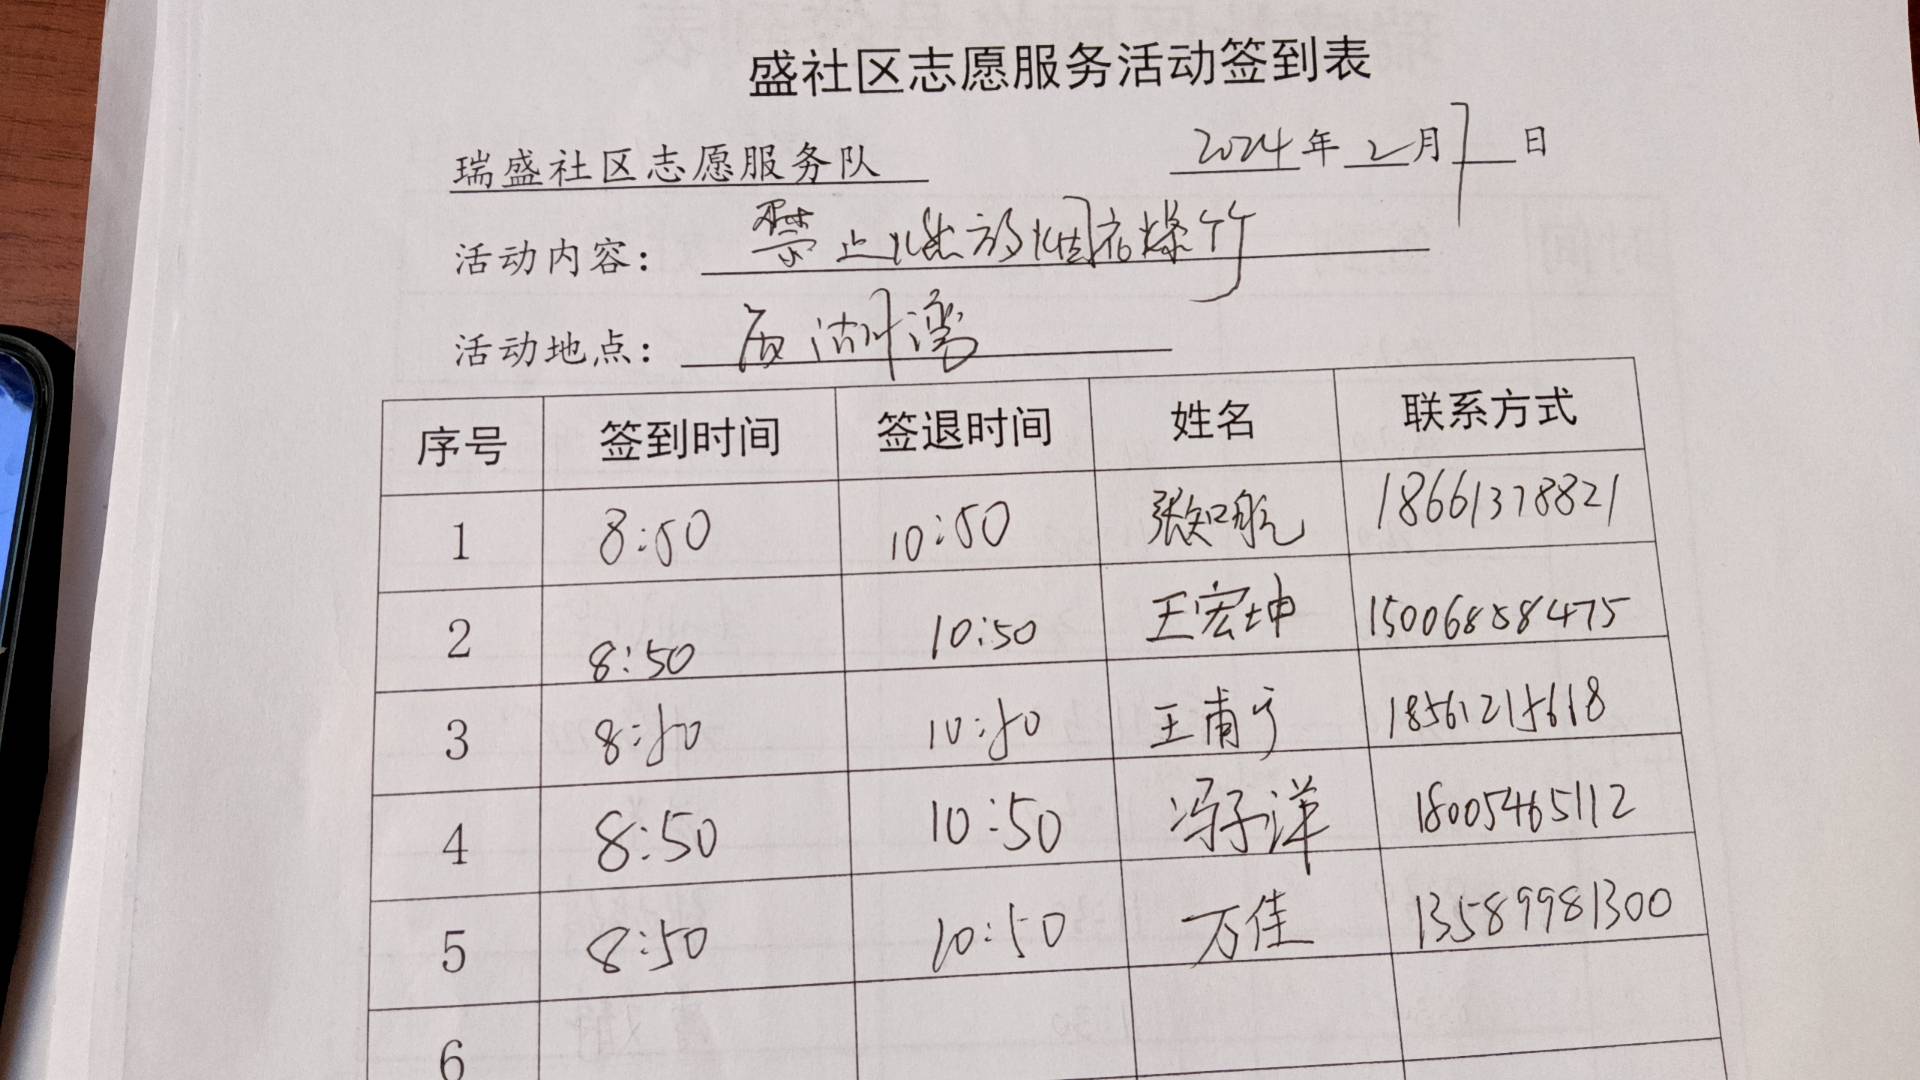 盛社区志愿服务活动签到表
瑞盛社区志愿服务队 2024年2月7日
活动内容: 禁止燃放烟花爆竹
活动地点: 湖湾
序号 签到时间 签退时间 姓名 联系方式
1 8:50 10:50 张知航 18661378821
2 8:50 10:50 王宏坤 15006858475
3 8:50 10:50 王甫宁 18561215618
4 8:50 10:50 冯子洋 18005465112
5 8:50 10:50 万佳 13589981300
6